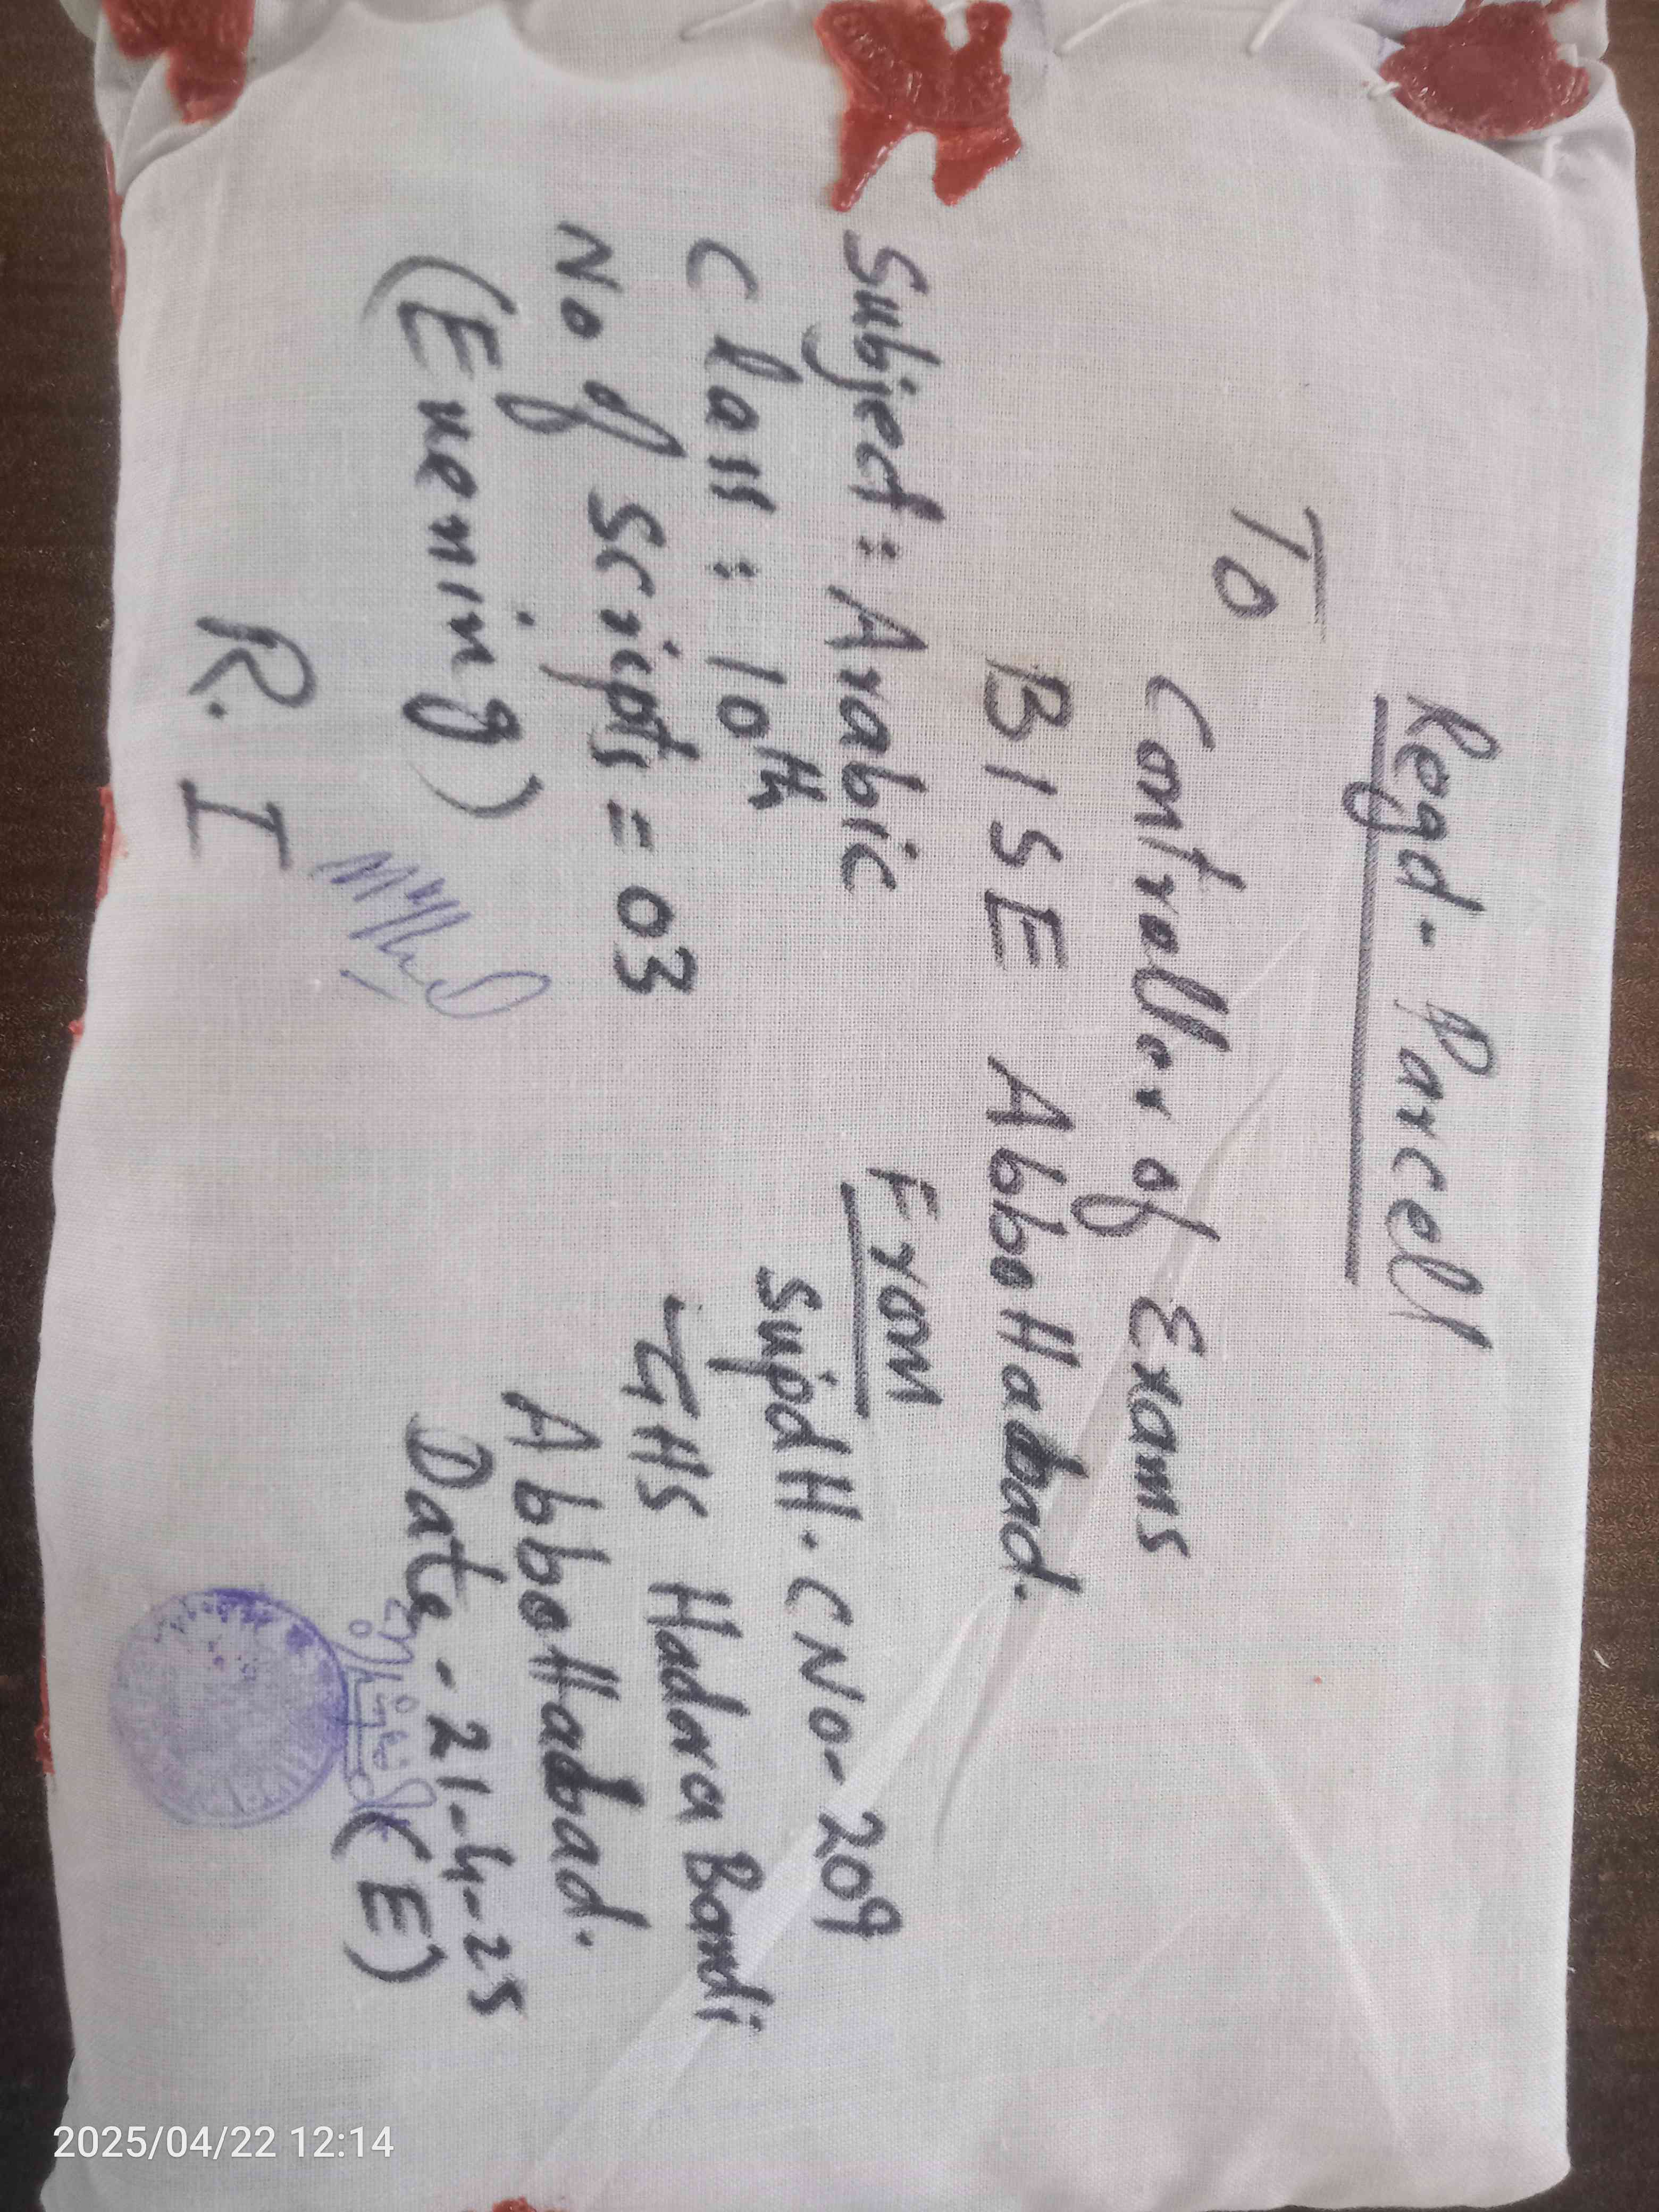 Regd - Parcel
To
Controller of Exams
BISE Abbottabad.
Subject: Arabic
Class: 10th
No of Scripts = 03
(Evening)
R. I
From
Supdtt. C No- 209
GHS Hadora Bandi
Abbottabad.
Date, - 21-4-25
(E)
2025/04/22 12:14